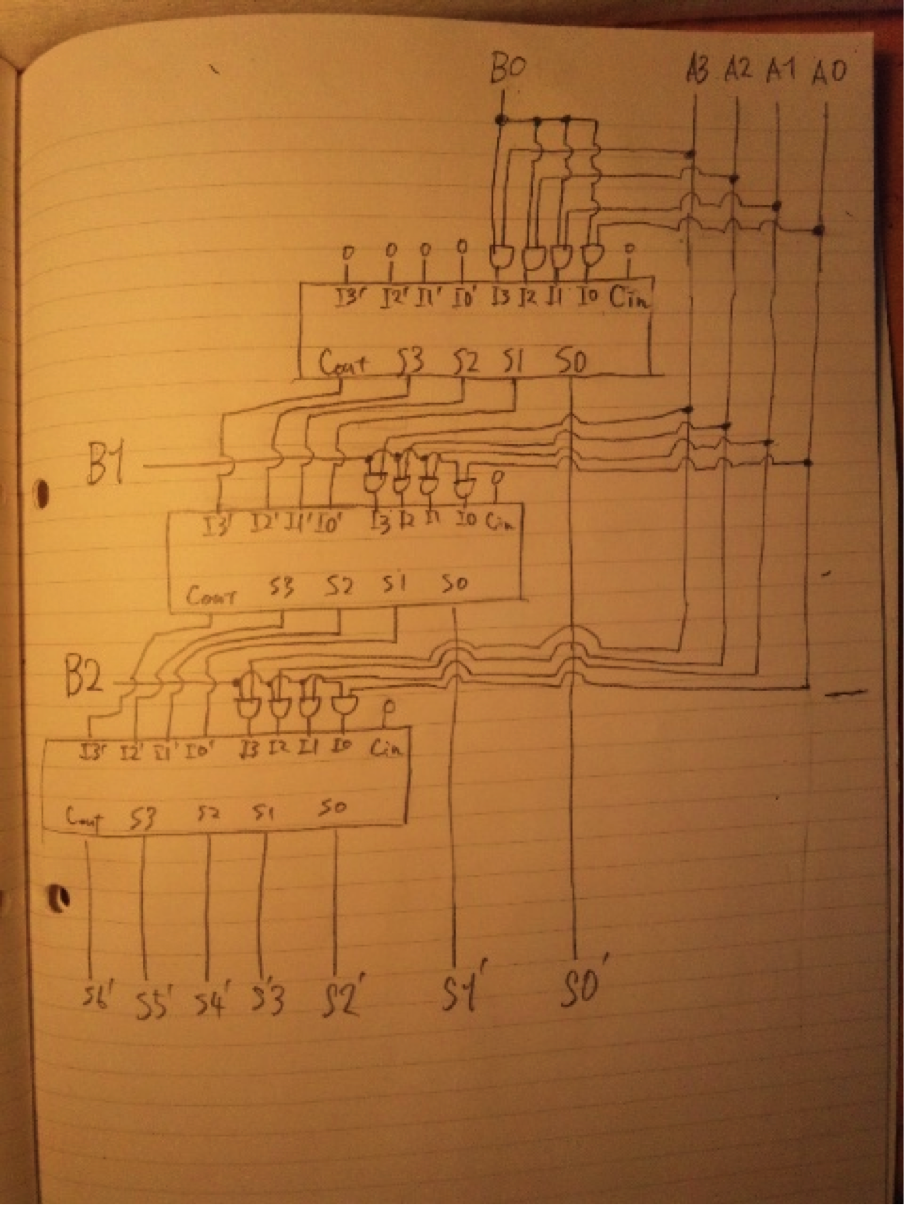 B0 A3 A2 A1 A0
0 0 0 0 0
I3' I2' I1' I0' I3 I2 I1 I0 Cin
Cout S3 S2 S1 S0
B1
0
I3' I2' I1' I0' I3 I2 I1 I0 Cin
Cout S3 S2 S1 S0
B2
0
I3' I2' I1' I0' I3 I2 I1 I0 Cin
Cout S3 S2 S1 S0
S6' S5' S4' S'3 S2' S1' S0'